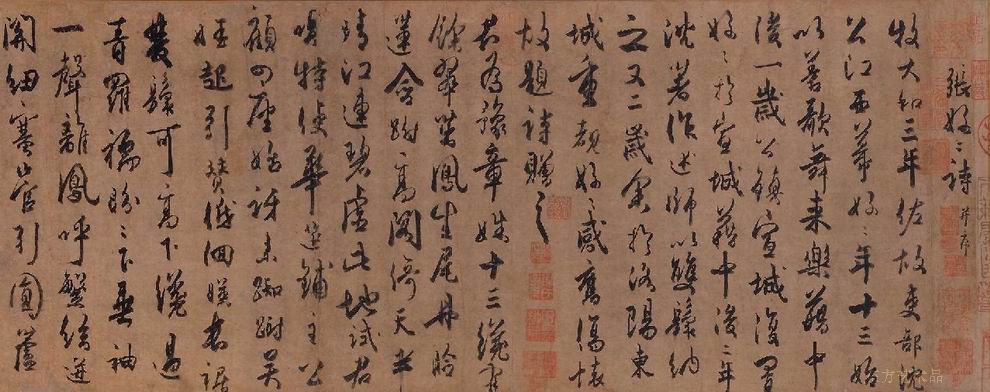 張好好詩 并序
牧大和三年佐故吏部沈
公江西幕好好年十三始
以善歌舞來樂籍中
後一歲公鎮宣城復置
好好於宣城籍中後二年
沈著作述師以雙鬟納
之又二歲余於洛陽東
城重覩好好感舊傷懷
故題詩贈之
君為豫章姝十三纔有
餘翠茁鳳生尾丹臉
蓮含跗高閣倚天半
晴江連碧虛此地試君
唱特使華筵鋪主公
顧四座始訝來踟躕吳
娃起引贊低佪映長裾
雙鬟可高下纔過
青羅襦盼盼下垂袖
一聲離鳳呼繁絃迸
關紐塞管引圓蘆